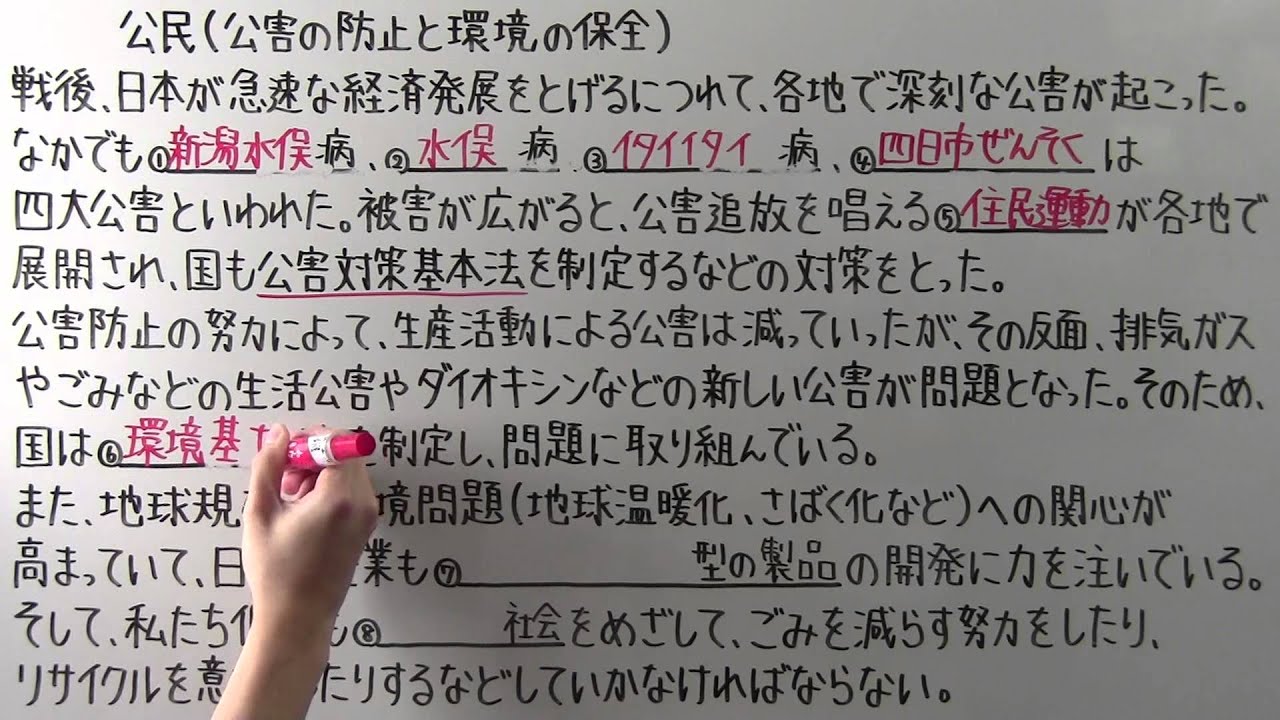 公民(公害の防止と環境の保全)
戦後、日本が急速な経済発展をとげるにつれて、各地で深刻な公害が起こった。
なかでも①新潟水俣病、②水俣病、③イタイイタイ病、④四日市ぜんそくは
四大公害といわれた。被害が広がると、公害追放を唱える⑤住民運動が各地で
展開され、国も公害対策基本法を制定するなどの対策をとった。
公害防止の努力によって、生産活動による公害は減っていったが、その反面、排気ガス
やごみなどの生活公害やダイオキシンなどの新しい公害が問題となった。そのため、
国は⑥環境基 を制定し、問題に取り組んでいる。
また、地球規 境問題(地球温暖化、さばく化など)への関心が
高まっていて、日 業も⑦ 型の製品の開発に力を注いでいる。
そして、私たち も⑧ 社会をめざして、ごみを減らす努力をしたり、
リサイクルを意 たりするなどしていかなければならない。